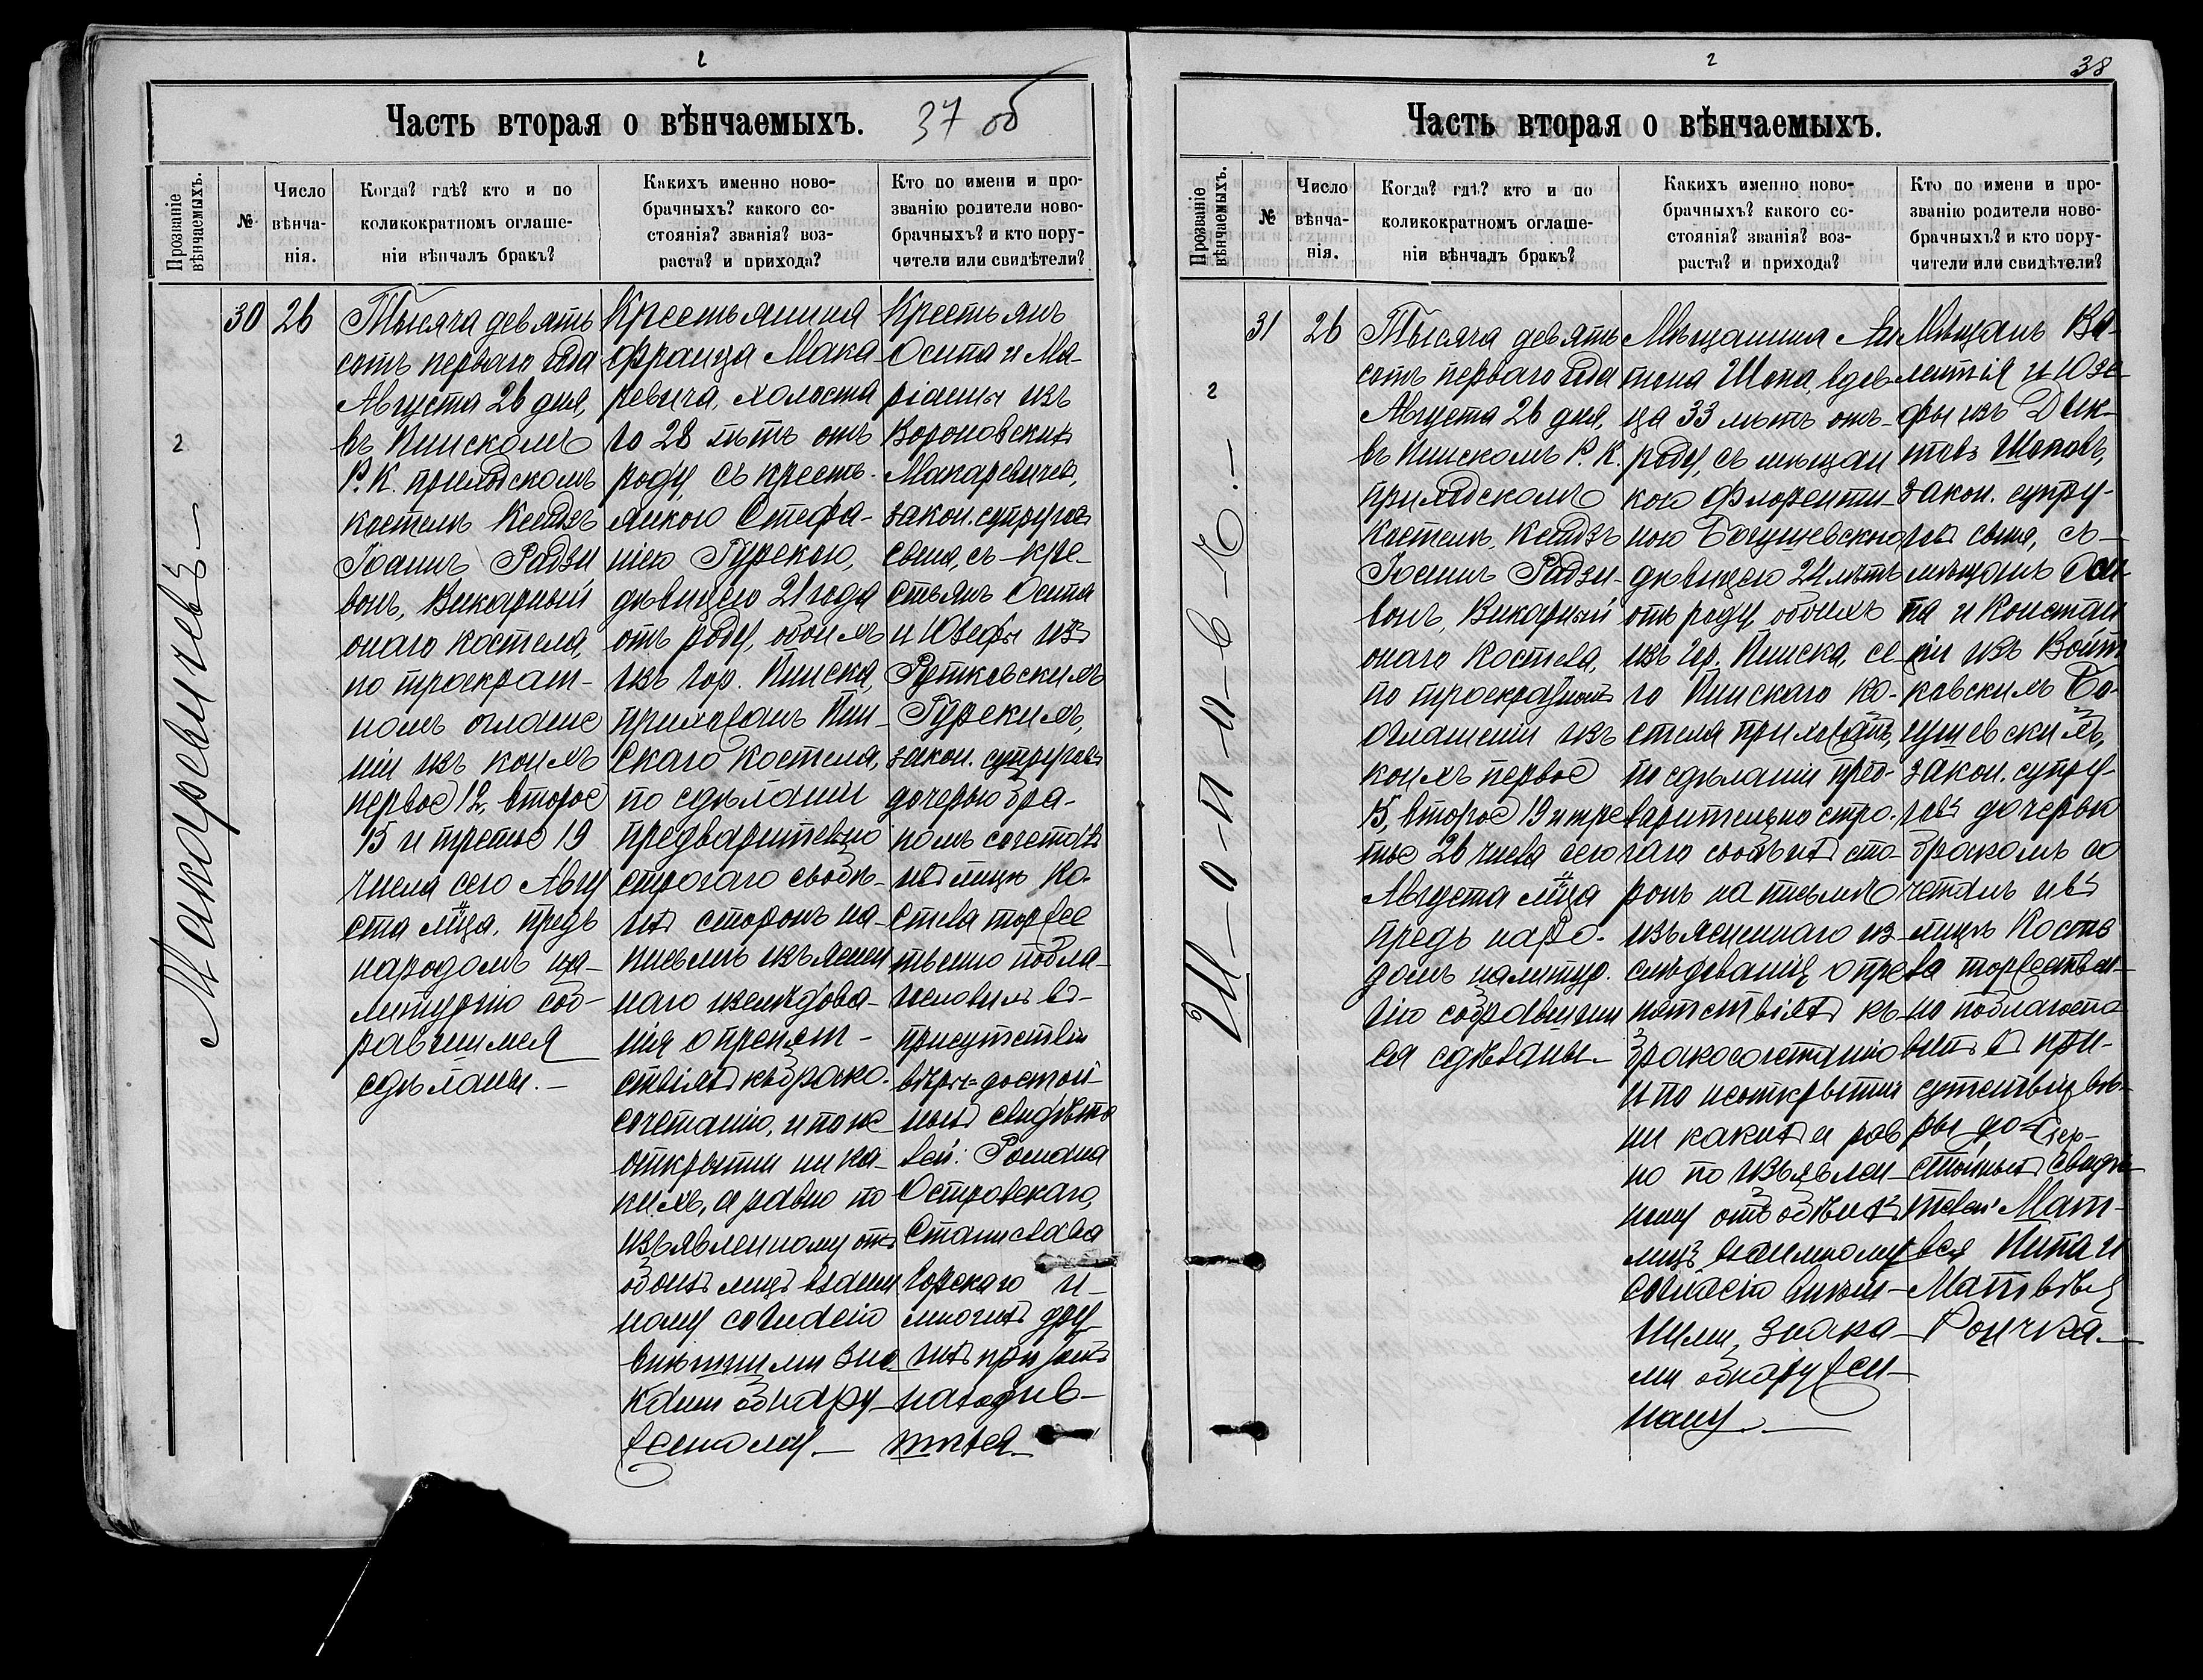 2
Часть вторая о вѣнчаемыхъ.
37 об
Прозваніе вѣнчаемыхъ.
№
Число вѣнча-
нія.
Когда? гдѣ? кто и по
коликократномъ оглаше-
ніи вѣнчалъ бракъ?
Какихъ именно ново-
брачныхъ? какого со-
стоянія? званія? воз-
раста? и прихода?
Кто по имени и про-
званію родители ново-
брачныхъ? и кто пору-
чители или свидѣтели?
2
Макаревичевъ
30
26
Тысяча девять
сотъ перваго года
Августа 26 дня,
въ Пинскомъ
Р. К. приходскомъ
костелѣ Ксендзъ
Іоаннъ Радзи
вонъ, Викарный
онаго костела,
по троекрат-
номъ оглаше
ніи изъ коихъ
первое 12, второе
15 и третье 19
числа сего Авгу
ста м̃ца, предъ
народомъ на
литургію соб-
равшимся
сдѣланы.—
Крестьянина
Франца Мака-
ревича, холоста
го 28 лѣтъ отъ
роду, съ кресть-
янкою Стефа-
ніею Гурскою,
дѣвицею 21 года
отъ роду, обоихъ
изъ гор. Пинска,
прихожанъ Пин-
скаго костела,
по сдѣланіи
предварительно
строгаго съ обѣ-
ихъ сторонъ на
письмѣ изъяснен
наго изслѣдова-
нія о препят-
ствіяхъ къ брако-
сочетанію, и по не
открытіи ни ка-
кихъ, а равно по
изъявленному отъ
обоихъ лицъ взаим
ному согласію
внѣшними зна
ками обнару-
женному.—
Крестьянъ
Осипа и Ма-
ріанны изъ
Вороновскихъ
Макаревичевъ,
закон. супруговъ
сына, съ кре-
стьянъ Осипа
и Юзефы изъ
Рутковскихъ
Гурскихъ,
закон. супруговъ
дочерью бра-
комъ сочеталъ
ихъ лицѣ Ко-
стела торже
твенно побла-
гословилъ въ
присутствіи
вѣры достой-
ныхъ свидѣте
лей: Романа
Островскаго,
Станислава
Горскаго и
многихъ дру
гихъ при томъ
находив-
шихся.
2
38
Часть вторая о вѣнчаемыхъ.
Прозваніе вѣнчаемыхъ.
№
Число вѣнча-
нія.
Когда? гдѣ? кто и по
коликократномъ оглаше-
ніи вѣнчалъ бракъ?
Какихъ именно ново-
брачныхъ? какого со-
стоянія? званія? воз-
раста? и прихода?
Кто по имени и про-
званію родители ново-
брачныхъ? и кто пору-
чители или свидѣтели?
2
31
26
Тысяча девять
сотъ перваго года
Августа 26 дня,
въ Пинскомъ Р. К.
приходскомъ
Костелѣ, Ксендзъ
Іоаннъ Радзи-
вонъ, Викарный
онаго Костела,
по троекратномъ
оглашеніи изъ
коихъ первое
15, второе 19 и тре
тье 26 числа сего
Августа м̃ца
предъ наро-
домъ на литур-
гію собравшим
ся сдѣланы.—
Мѣщанина Ан
тона Шопа, вдов
ца 33 лѣтъ отъ
роду, съ мѣщан
кою Флоренти-
ною Богушевскою
дѣвицею 24 лѣтъ
отъ роду, обоихъ
изъ гор. Пинска, се
го Пинскаго Ко-
стела прихожанъ,
по сдѣланіи пред-
варительно стро-
гаго съ обѣихъ сто-
ронъ на письмѣ
изъясненнаго из
слѣдованія о пре
пятствіяхъ къ
бракосочетанію
и по неоткрытіи
ни какихъ а рав
но по изъявлен-
ному отъ обѣихъ
лицъ взаимному
согласію внѣш-
ними, знака-
ми обнаружен-
ному.—
Мѣщанъ Ва-
лентія и Юзе-
фы изъ
Шоповъ,
закон. супру-
говъ сына, съ
мѣщанъ Оси-
па и Констан
ціи изъ Войт
ковскихъ Бо-
гушевскихъ,
закон. супру-
говъ дочерью
бракомъ со
четалъ ихъ
лицѣ Косте
ла торжествен-
но поблагосло
вилъ въ при-
сутствіи вѣ-
ры до-
стойныхъ свидѣ
телей Мат-
вея Пипа и
Матвѣя